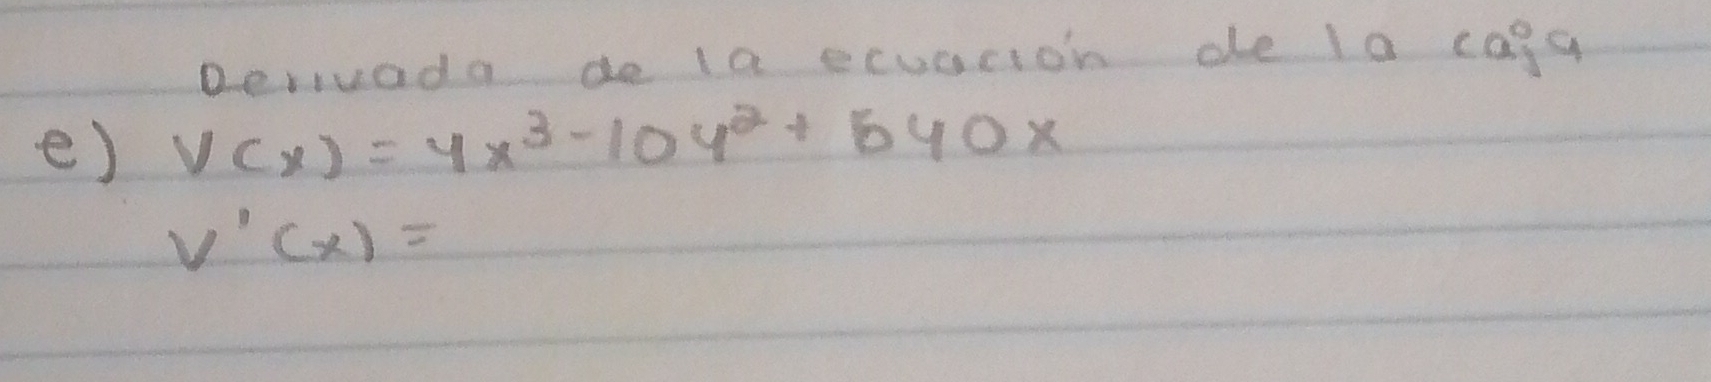 Derivada de la ecuación de la caja
e) V(x) = 4x³ - 104² + 540x
V'(x) =